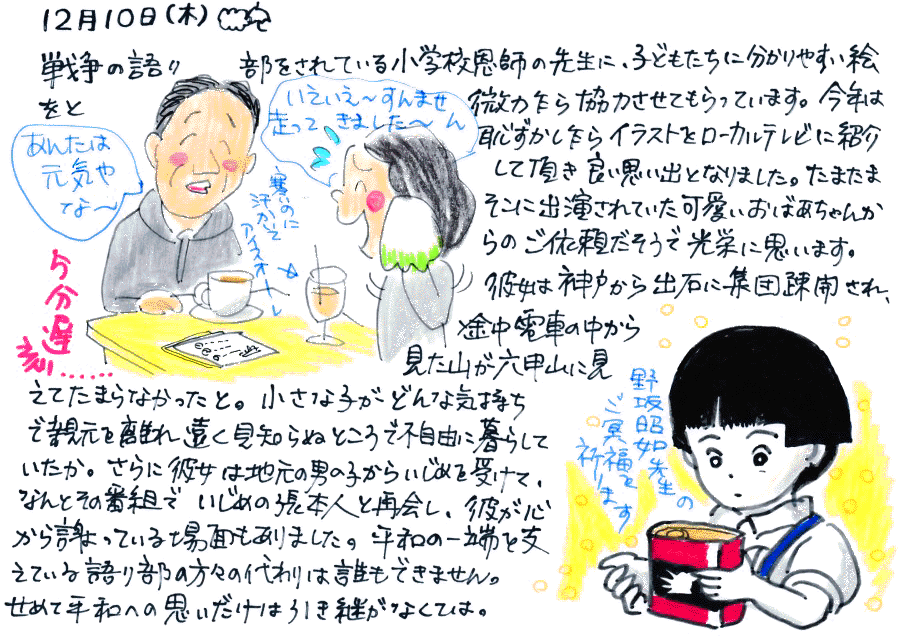 12月10日(木)
戦争の語り部をされている小学校恩師の先生に、子どもたちに分かりやすい絵
をと
微力ながら協力させてもらっています。今年は
恥ずかしながらイラストをローカルテレビに紹介
して頂き良い思い出となりました。たまたま
そこに出演されていた可愛いおばあちゃんか
らのご依頼だそうで光栄に思います。
彼女は神戸から出石に集団疎開され、
途中電車の中から
見た山が六甲山に見
えてたまらなかったと。小さな子がどんな気持ち
で親元を離れ、遠く見知らぬところで不自由に暮らして
いたか。さらに彼女は地元の男の子からいじめを受けて、
なんとその番組でいじめの張本人と再会し、彼が心
から謝まっている場面もありました。平和の一端を支
えている語り部の方々の代わりは誰もできません。
せめて平和への思いだけは引き継がなくては。
あんたは
元気や
なあ〜
いえいえ〜すんませ
走ってきました〜ん
寒いのに
汗かいて
アイスオーレ
5分遅刻……
野坂昭如先生の
ご冥福を
祈ります